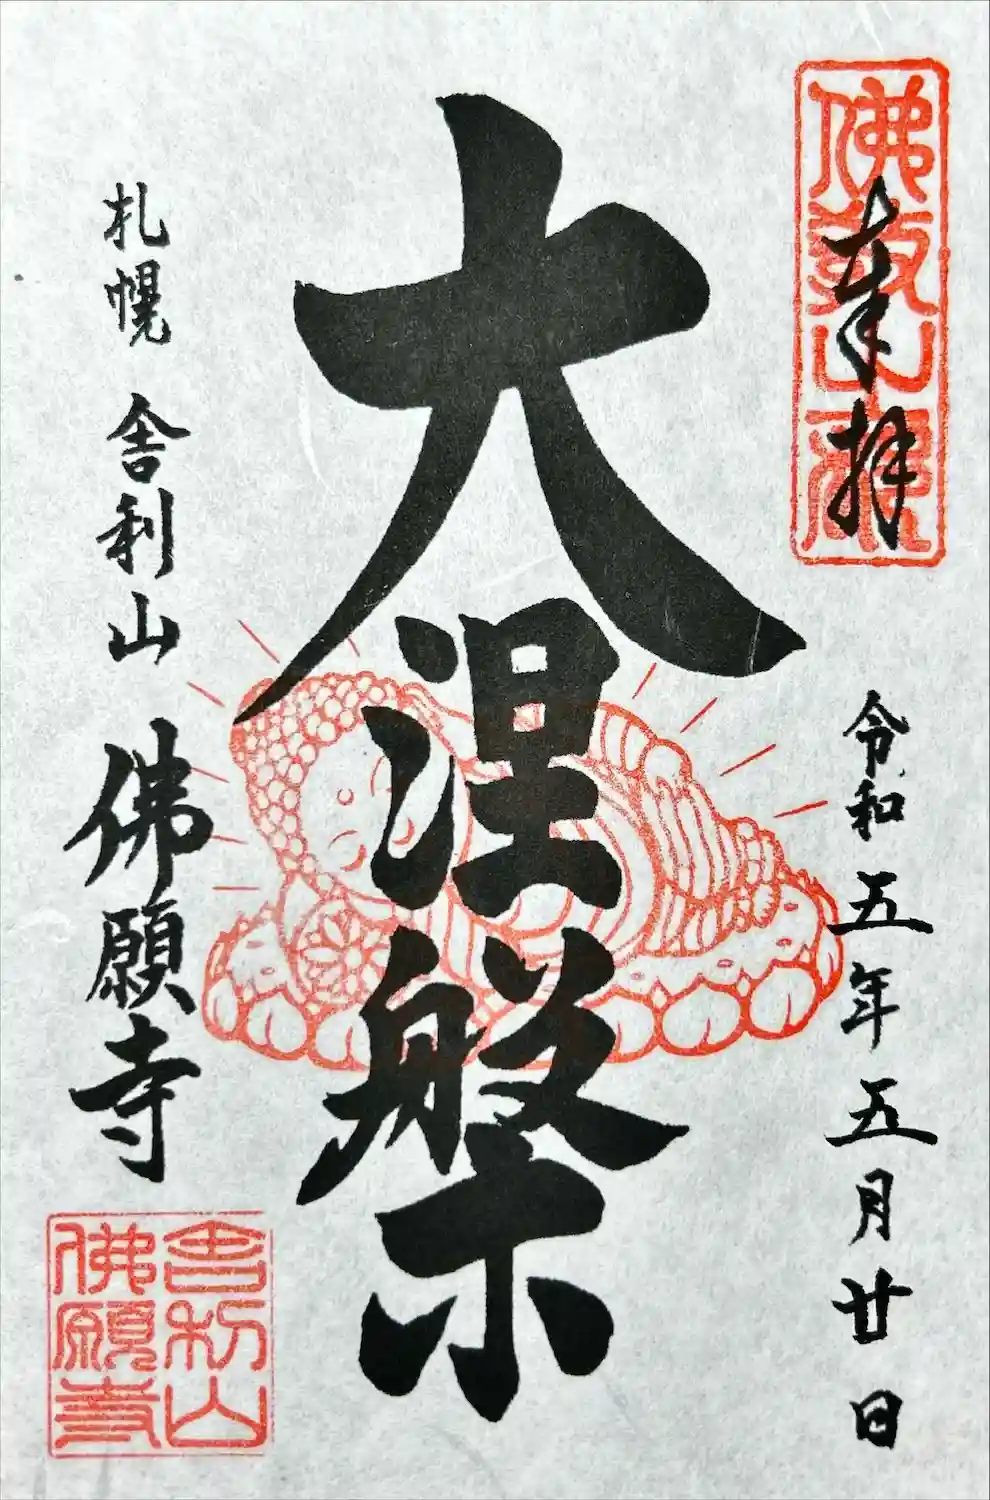 奉拝
令和五年五月廿日
大涅槃
札幌 舎利山 佛願寺
舎利山
佛願寺